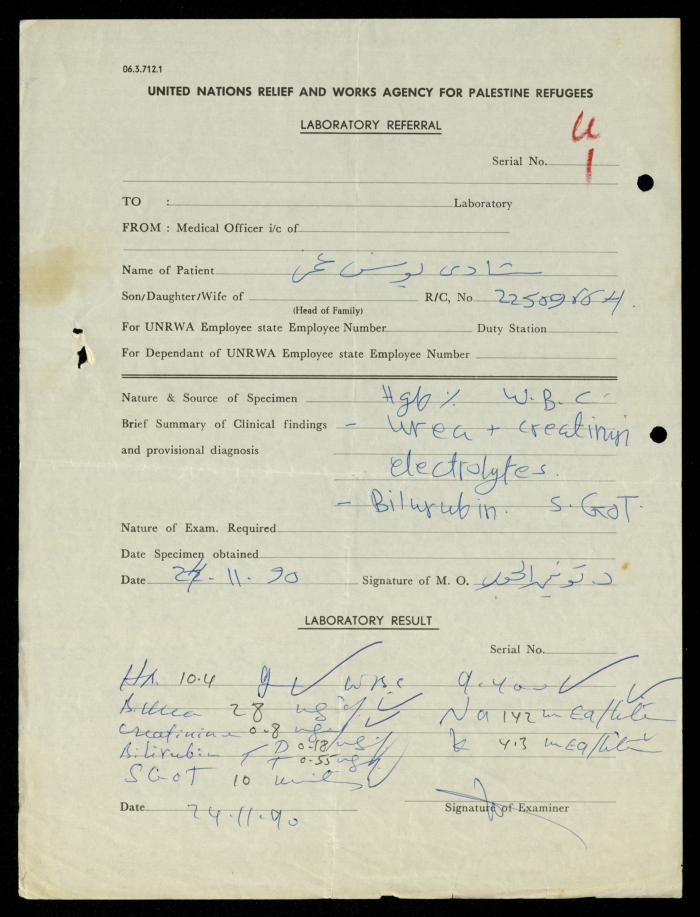 06.3.712.1
UNITED NATIONS RELIEF AND WORKS AGENCY FOR PALESTINE REFUGEES
LABORATORY REFERRAL
Serial No.
TO : Laboratory
FROM : Medical Officer i/c of
Name of Patient شادى يونس عمر
Son/Daughter/Wife of R/C, No
(Head of Family)
For UNRWA Employee state Employee Number Duty Station
For Dependant of UNRWA Employee state Employee Number
Nature & Source of Specimen Hgb % W.B.C.
Brief Summary of Clinical findings - urea + creatinin
and provisional diagnosis
electrolytes.
- Bilurubin. S.GOT.
Nature of Exam. Required
Date Specimen obtained
Date 24.11.90 Signature of M. O. د.
LABORATORY RESULT
Serial No.
Hb. 10.4 g WBC
B.Urea 28 mg% Na 142 mEq/liter
Creatinine 0.8 mg% K 4.3 mEq/liter
Bilirubin D 0.18 mg%
T 0.55 mg%
SGOT 10 units
Date 24.11.90 Signature of Examiner